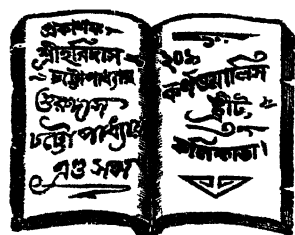 প্রকাশক:
শ্রীহরিদাস
চট্টোপাধ্যায়
গুরুদাস
চট্টোপাধ্যায়
এণ্ড সন্স
২০৯
কর্ণওয়ালিস
ষ্ট্রীট,
কলিকাতা।